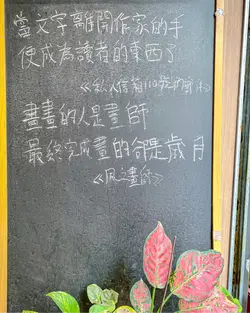 當文字離開作家的手
便成為讀者的東西了
≪私人信箱110號的
畫畫的人是畫師
最終完成畫的卻是歲月
≪風之畫師≫